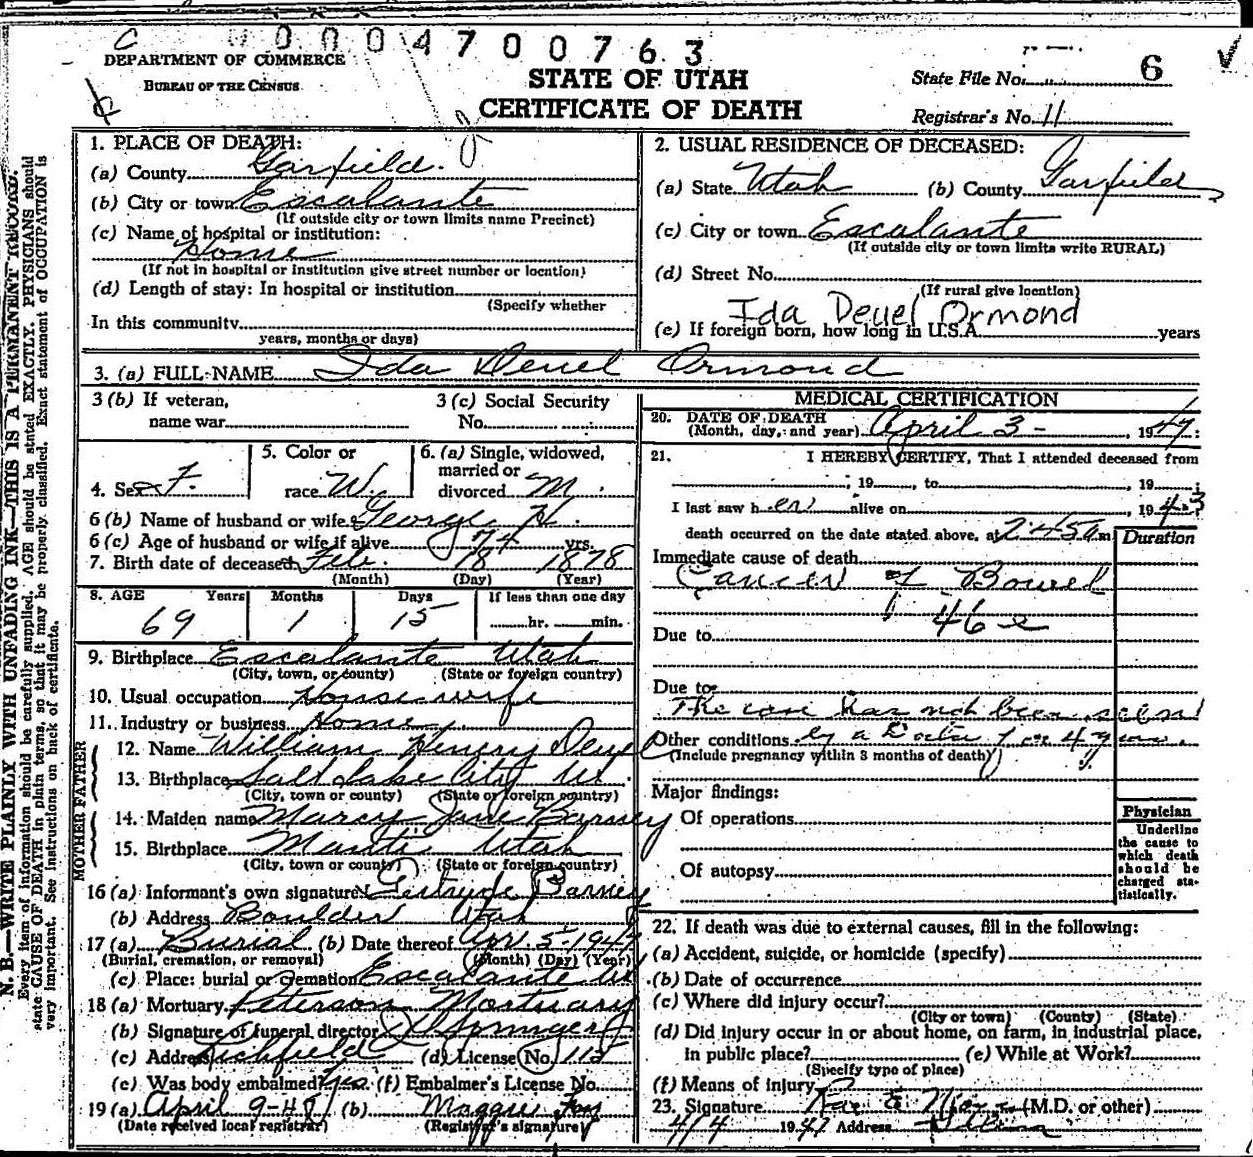 0004700763
DEPARTMENT OF COMMERCE
BUREAU OF THE CENSUS
STATE OF UTAH
CERTIFICATE OF DEATH
State File No. 6
Registrar's No. 11
N. B.—WRITE PLAINLY WITH UNFADING INK—THIS IS A PERMANENT RECORD.
Every item of information should be carefully supplied. AGE should be stated EXACTLY. PHYSICIANS should
state CAUSE OF DEATH in plain terms, so that it may be properly classified. Exact statement of OCCUPATION is
very important. See instructions on back of certificate.
1. PLACE OF DEATH:
(a) County Garfield
(b) City or town Escalante
(If outside city or town limits name Precinct)
(c) Name of hospital or institution:
Home
(If not in hospital or institution give street number or location)
(d) Length of stay: In hospital or institution
(Specify whether
In this community
years, months or days)
2. USUAL RESIDENCE OF DECEASED:
(a) State Utah (b) County Garfield
(c) City or town Escalante
(If outside city or town limits write RURAL)
(d) Street No.
(If rural give location)
Ida Deuel Ormond
(e) If foreign born, how long in U.S.A. years
3. (a) FULL NAME Ida Deuel Ormond
3 (b) If veteran,
name war
3 (c) Social Security
No.
4. Sex F.
5. Color or
race W.
6. (a) Single, widowed,
married or
divorced M.
6 (b) Name of husband or wife George H.
6 (c) Age of husband or wife if alive 74 yrs.
7. Birth date of deceased Feb. 18 1878
(Month) (Day) (Year)
8. AGE Years Months Days If less than one day
69 1 15 hr. min.
9. Birthplace Escalante Utah
(City, town, or county) (State or foreign country)
10. Usual occupation Housewife
11. Industry or business Home
FATHER
12. Name William Henry Deuel
13. Birthplace Salt Lake City Ut
(City, town or county) (State or foreign country)
MOTHER
14. Maiden name Marcy Jane Barney
15. Birthplace Manti Utah
(City, town or county) (State or foreign country)
16 (a) Informant's own signature Gertrude Barney
(b) Address Boulder Utah
17 (a) Burial (b) Date thereof Apr. 5-1947
(Burial, cremation, or removal) (Month) (Day) (Year)
(c) Place: burial or cremation Escalante Ut
18 (a) Mortuary Peterson Mortuary
(b) Signature of funeral director Springer
(c) Address Richfield (d) License No. 115
(e) Was body embalmed? Yes (f) Embalmer's License No.
19 (a) April 9-48 (b) Maggie
(Date received local registrar) (Registrar's signature)
MEDICAL CERTIFICATION
20. DATE OF DEATH
(Month, day, and year) April 3- , 1947
21. I HEREBY CERTIFY, That I attended deceased from
, 19 , to , 19 ;
I last saw her alive on , 1943
death occurred on the date stated above, at 2:45 a m
Duration
Immediate cause of death
Cancer of Bowel
46e
Due to
Due to
The case has not been seen
Other conditions by a Doctor for 4 years.
(Include pregnancy within 3 months of death)
Major findings:
Of operations
Of autopsy
Physician
Underline
the cause to
which death
should be
charged sta-
tistically.
22. If death was due to external causes, fill in the following:
(a) Accident, suicide, or homicide (specify)
(b) Date of occurrence
(c) Where did injury occur?
(City or town) (County) (State)
(d) Did injury occur in or about home, on farm, in industrial place,
in public place? (e) While at Work?
(Specify type of place)
(f) Means of injury
23. Signature (M.D. or other)
4/4 1947 Address